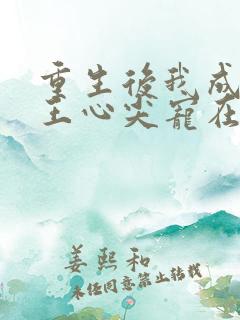 重生後我成
王心尖寵在
姜熙和
未經同意禁止轉載